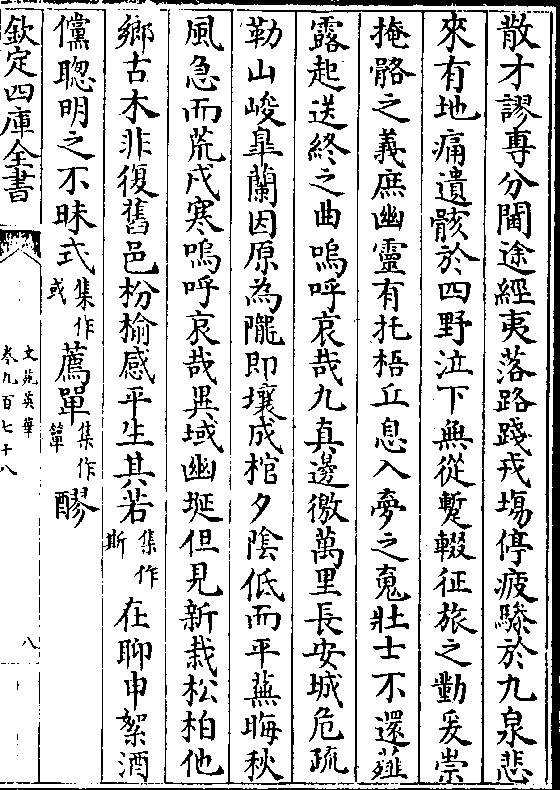 散才謬專分閫途經夷落路踐戎場停疲驂於九泉悲
來有地痛遺骸於四野泣下無從蹔輟征旅之勤爰崇
掩骼之義庶幽靈有托梧丘息入夣之䰟壯士不還薤
露起送終之曲嗚呼哀哉九真邊徼萬里長安城危疏
勒山峻臯蘭因原為隴即壤成棺夕陰低而平蕪晦秋
風急而荒戍寒嗚呼哀哉異域幽埏但見新栽松柏他
鄉古木非復舊邑枌榆感平生其若集作斯在聊申絮酒
儻聦明之不昧式集作或薦單集作簞醪
欽定四庫全書
文苑英華
卷九百七十八
八